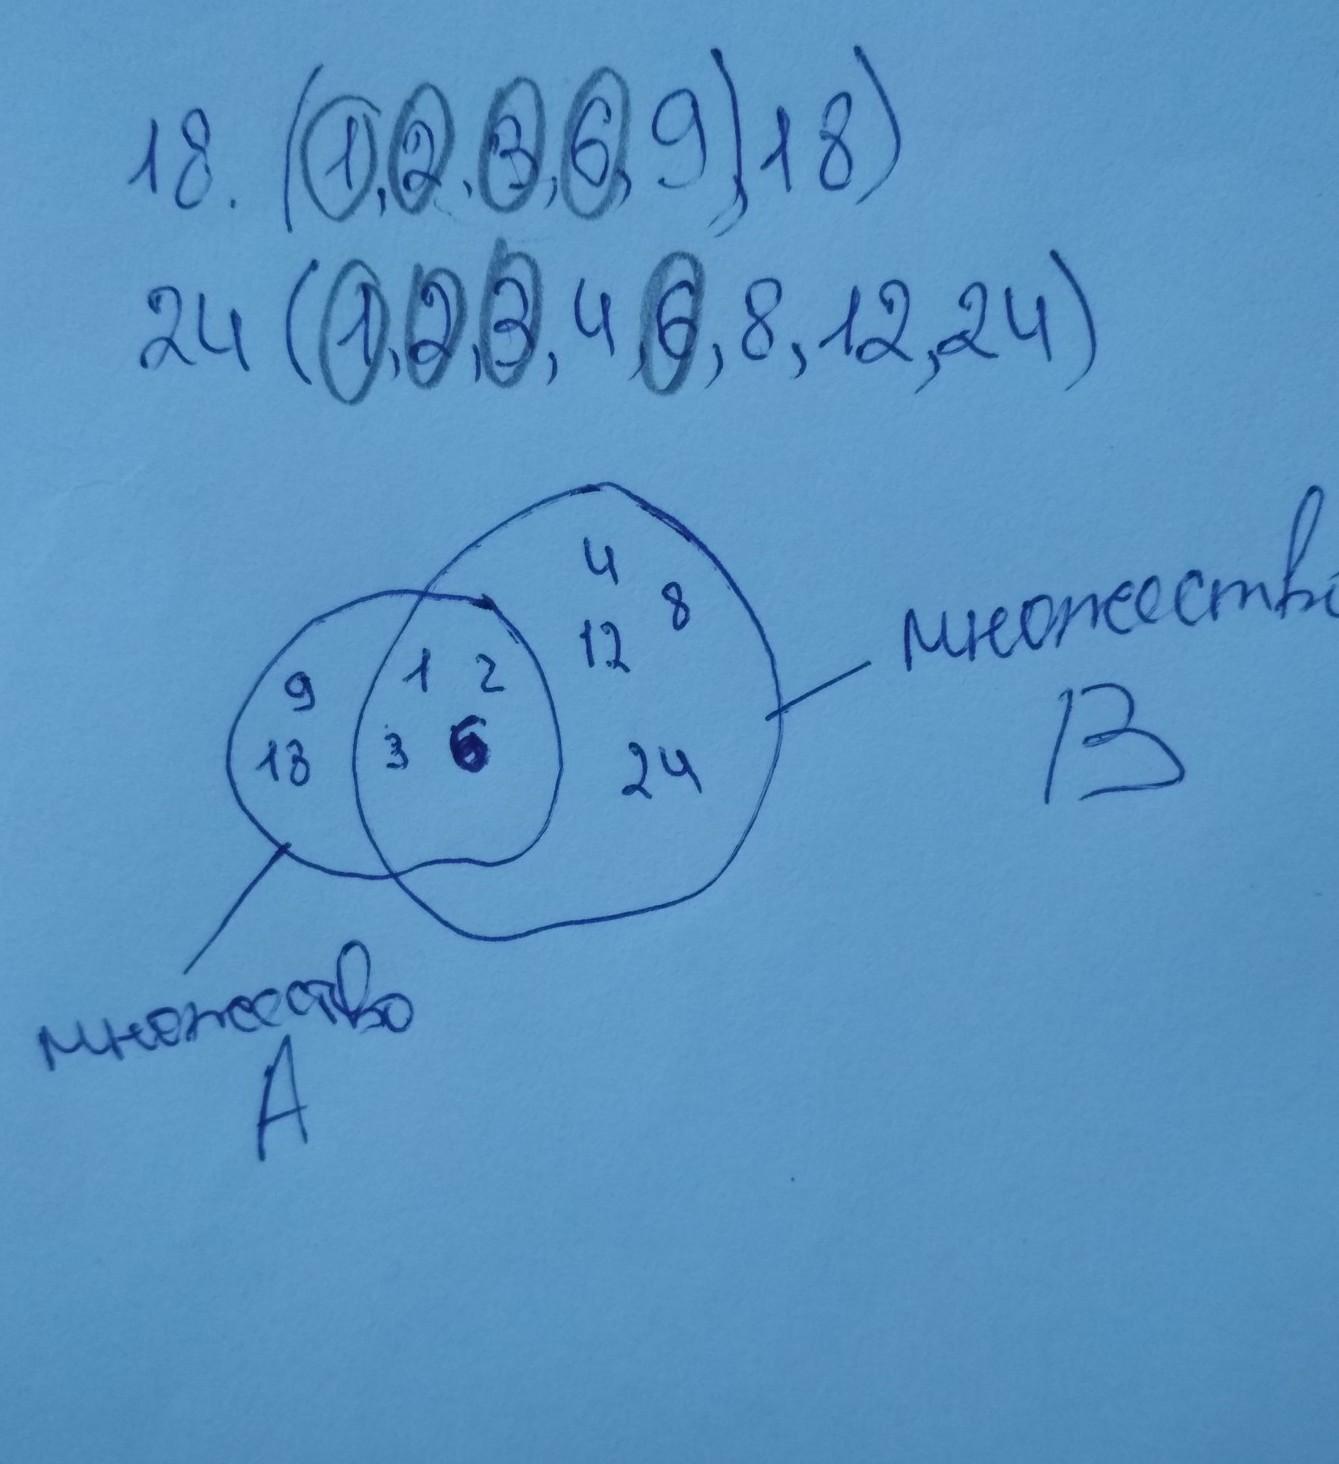 18. (1, 2, 3, 6, 9), 18)
24 (1, 2, 3, 4, 6, 8, 12, 24)
4
8
12
1 2
9
3 6
18
24
множество
B
множество
A